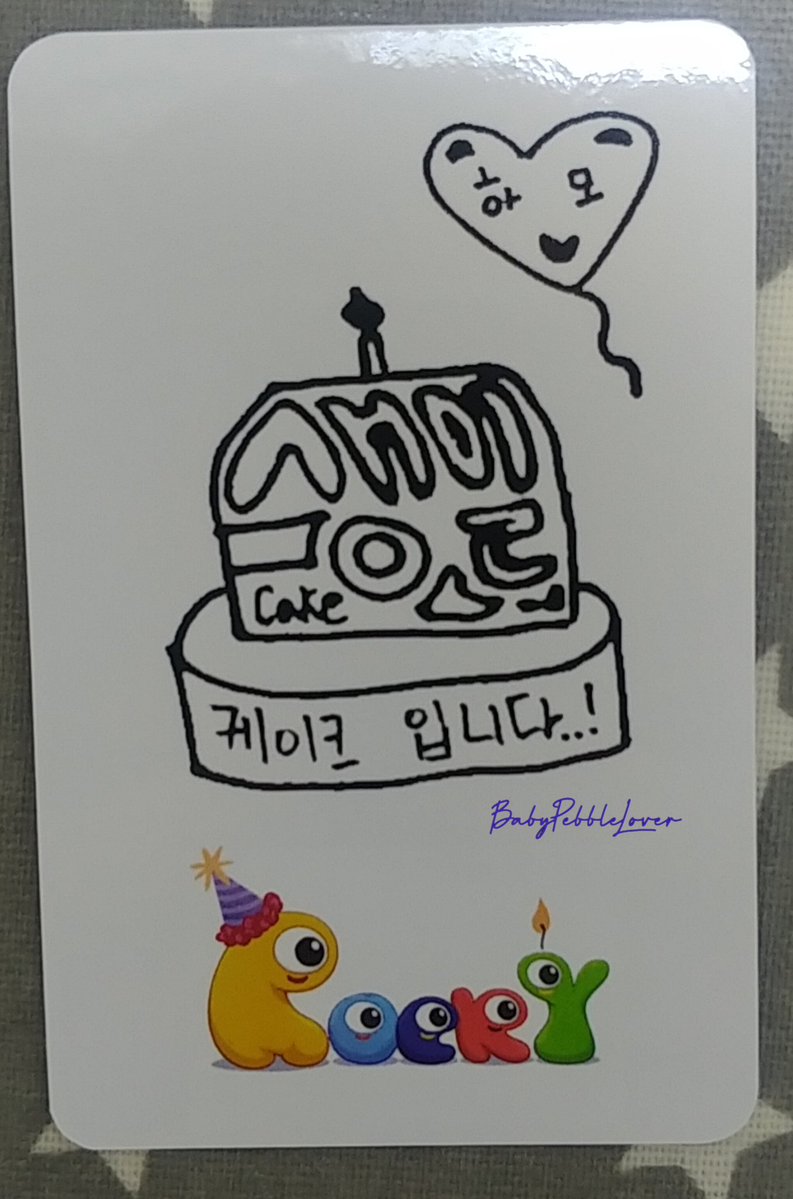 하 모
생일
Cake
케이크 입니다..!
BabyPebbleLover